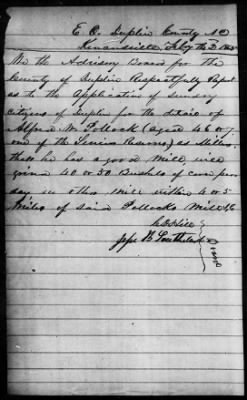 E. O. Duplin County N C
Kenansville, Feby the 3 1865
We the Advisory Board for the
County of Duplin Respectfully Report
as to the Application of sundry
citizens of Duplin for the detail of
Alfred W. Pollock (aged 46 &
one of the Senior Reserves) as Miller,
that he has a good Mill, will
grind 40 or 50 Bushels of corn per
day no other Mill within 4 or 5
Miles of said Pollocks Mill &c
Jesse B Southerland